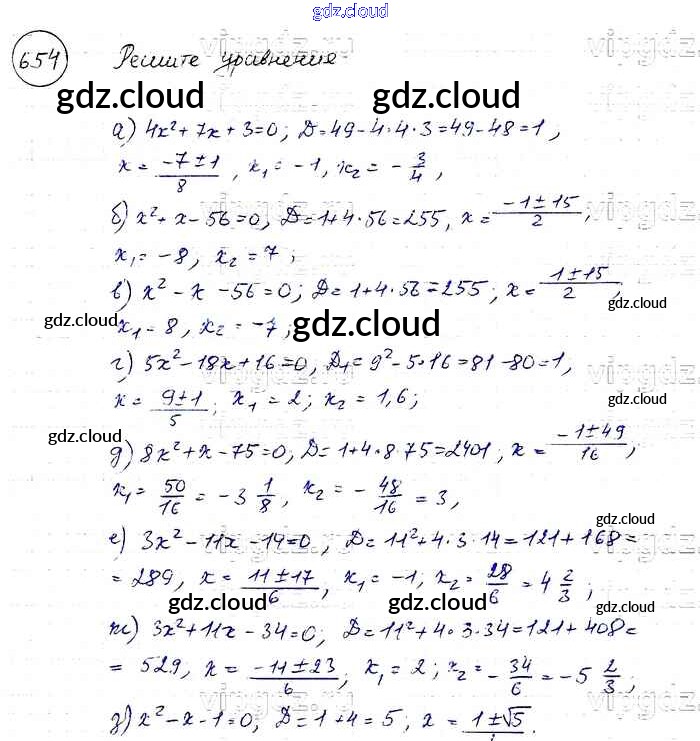 gdz.cloud
654 Решите уравнения
gdz.cloud gdz.cloud
а) 4x² + 7x + 3 = 0; D = 49 - 4·4·3 = 49 - 48 = 1,
x = (-7 ± 1)/8, x₁ = -1, x₂ = -3/4,
б) x² + x - 56 = 0, D = 1 + 4·56 = 255, x = (-1 ± 15)/2,
x₁ = -8, x₂ = 7;
в) x² - x - 56 = 0; D = 1 + 4·56 = 255; x = (1 ± 15)/2,
gdz.cloud
gdz.cloud gdz.cloud
x₁ = 8, x₂ = -7;
г) 5x² - 18x + 16 = 0, D₁ = 9² - 5·16 = 81 - 80 = 1,
gdz.cloud
x = (9 ± 1)/5; x₁ = 2; x₂ = 1,6;
gdz.cloud
д) 8x² + x - 75 = 0; D = 1 + 4·8·75 = 2401, x = (-1 ± 49)/16,
x₁ = 50/16 = -3 1/8, x₂ = -48/16 = 3,
gdz.cloud
е) 3x² - 11x - 14 = 0, D = 11² + 4·3·14 = 121 + 168 =
= 289, x = (11 ± 17)/6, x₁ = -1, x₂ = 28/6 = 4 2/3;
gdz.cloud gdz.cloud gdz.cloud
ж) 3x² + 11x - 34 = 0, D = 11² + 4·3·34 = 121 + 408 =
= 529, x = (-11 ± 23)/6, x₁ = 2; x₂ = -34/6 = -5 2/3;
gdz.cloud
з) x² - x - 1 = 0, D = 1 + 4 = 5; x = 1 ± √5